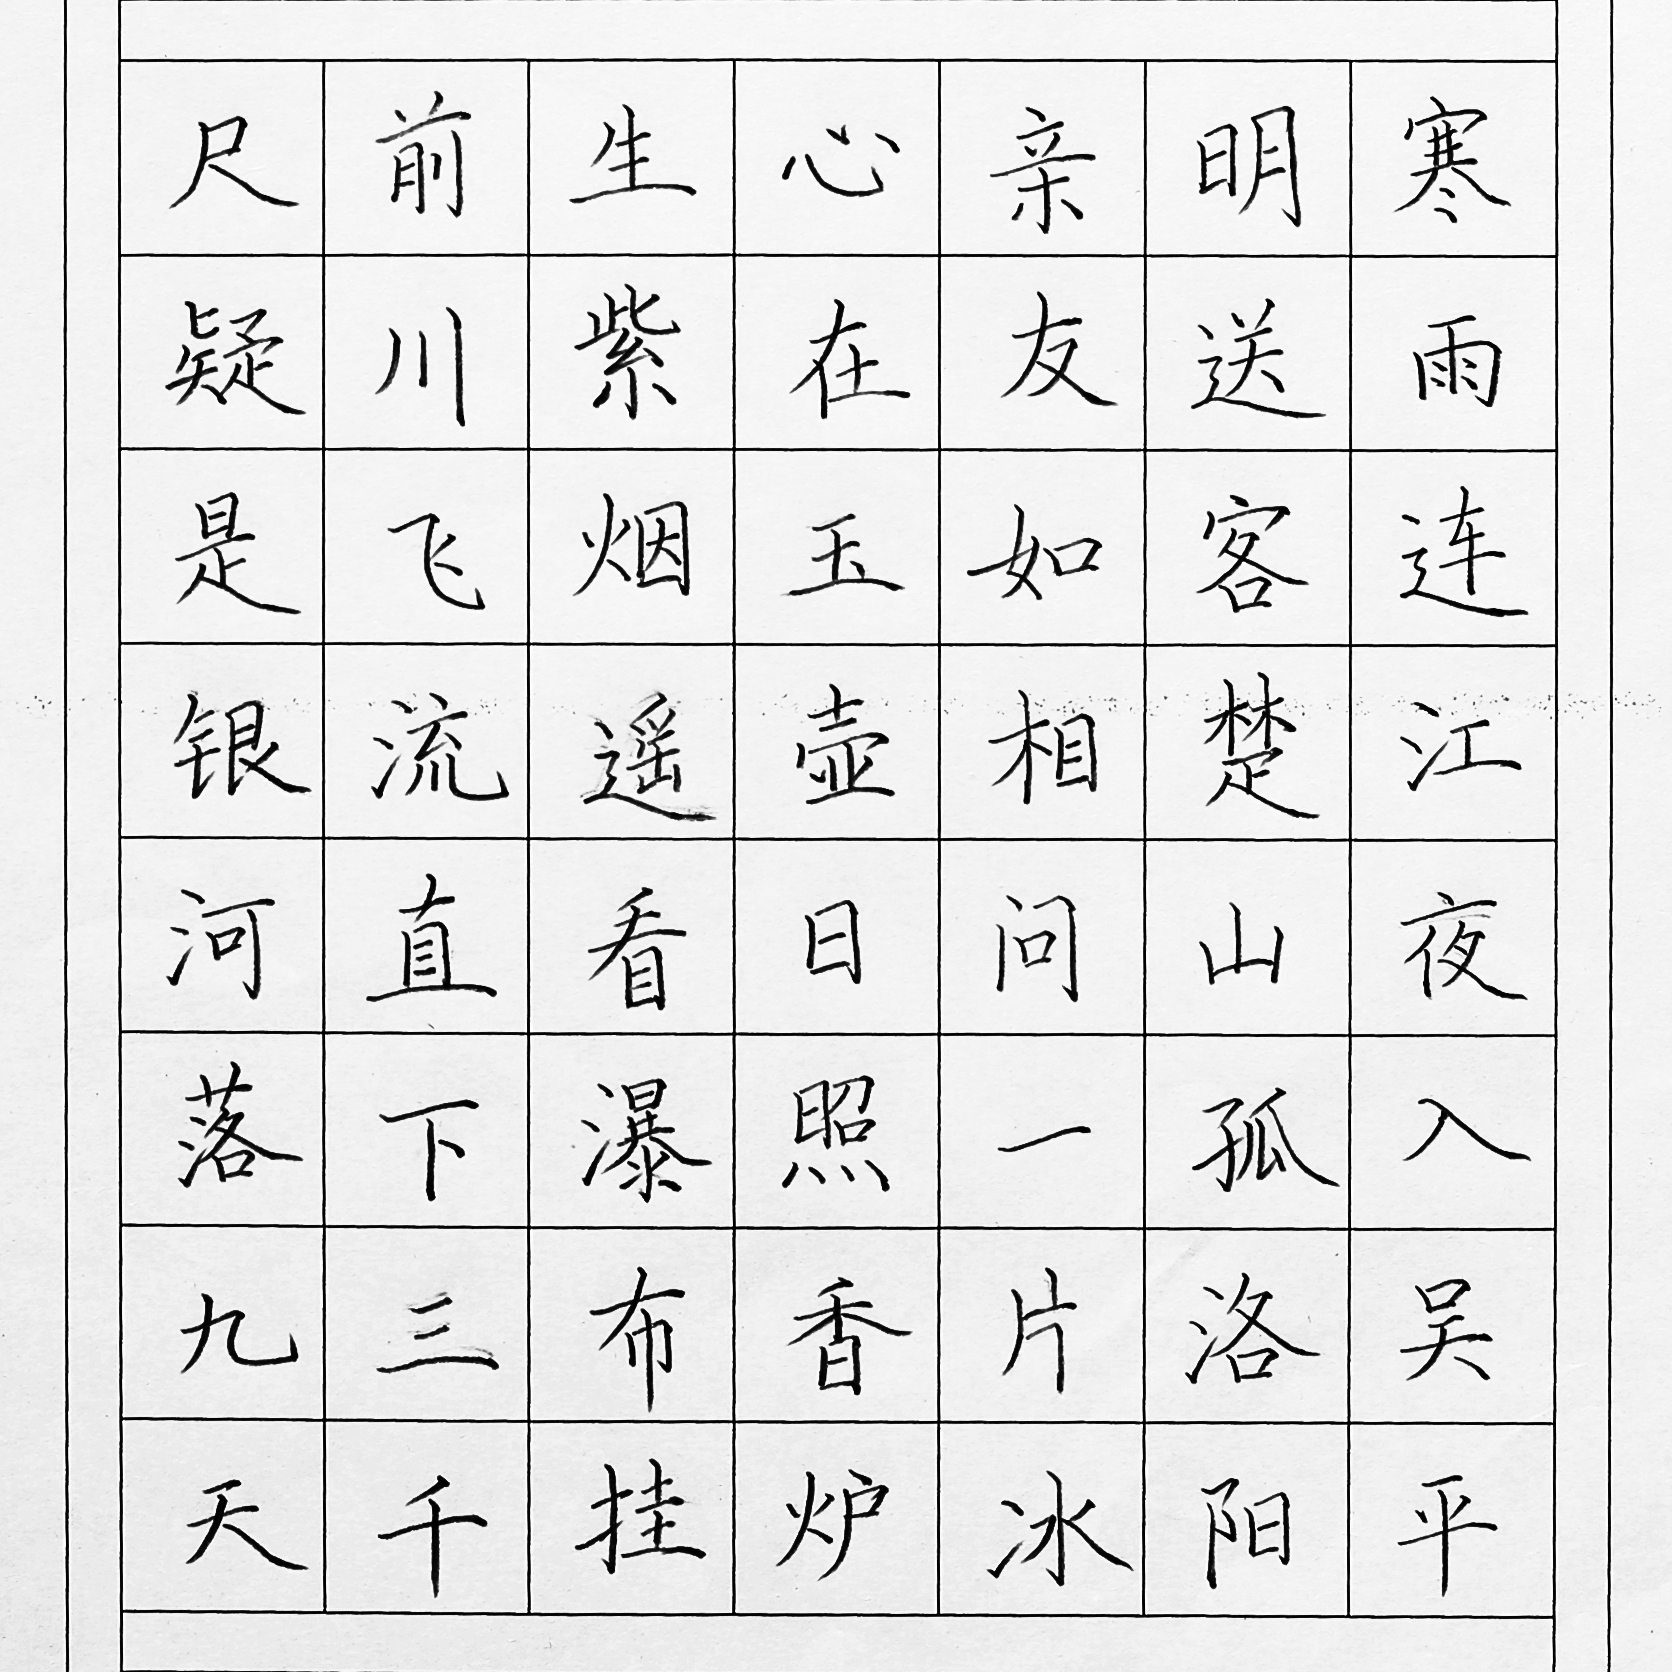 寒雨连江夜入吴平
明送客楚山孤洛阳
亲友如相问一片冰
心在玉壶日照香炉
生紫烟遥看瀑布挂
前川飞流直下三千
尺疑是银河落九天